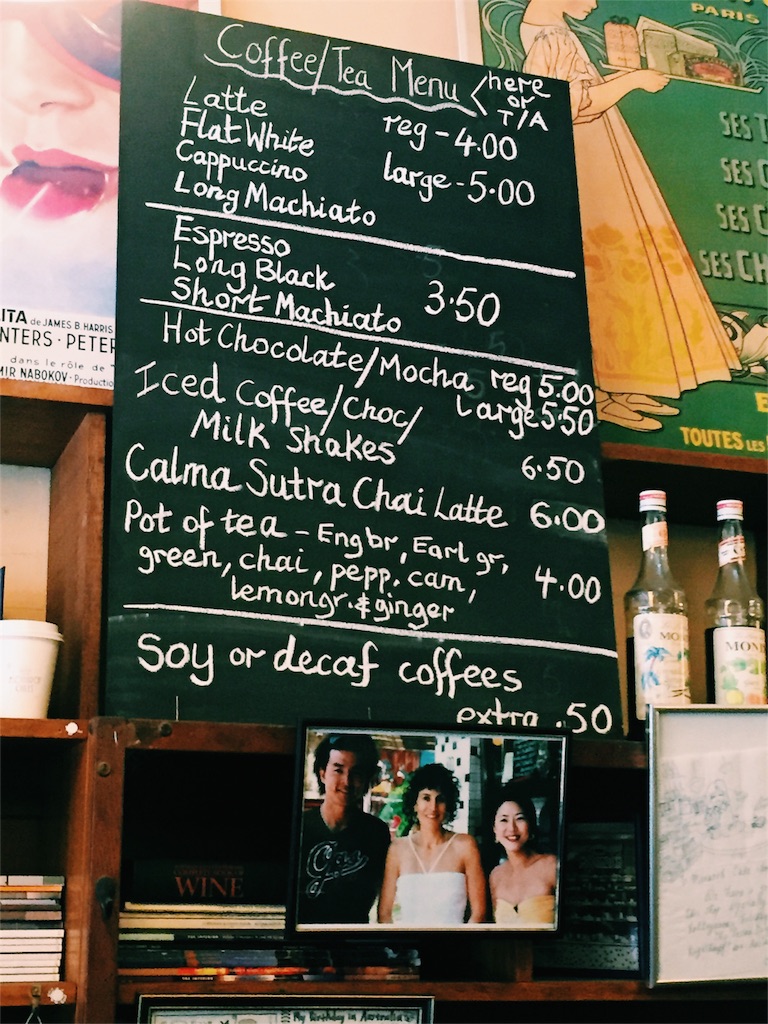 Coffee/Tea Menu
here
or
T/A
Latte
Flat White
Cappuccino
Long Machiato
reg - 4.00
large - 5.00
Espresso
Long Black
Short Machiato
3.50
Hot Chocolate/Mocha reg 5.00
large 5.50
Iced Coffee/Choc/
Milk Shakes
6.50
Calma Sutra Chai Latte 6.00
Pot of tea - Eng br, Earl gr,
green, chai, pepp, cam,
lemongr. & ginger
4.00
Soy or decaf coffees
extra .50
PARIS
SES
SES
SES
SES CH
TOUTES LES
ITA de JAMES B. HARRIS
NTERS · PETER
dans le rôle de
MIR NABOKOV · Productio
MONI
MONI
WINE
My Birthday in Australia